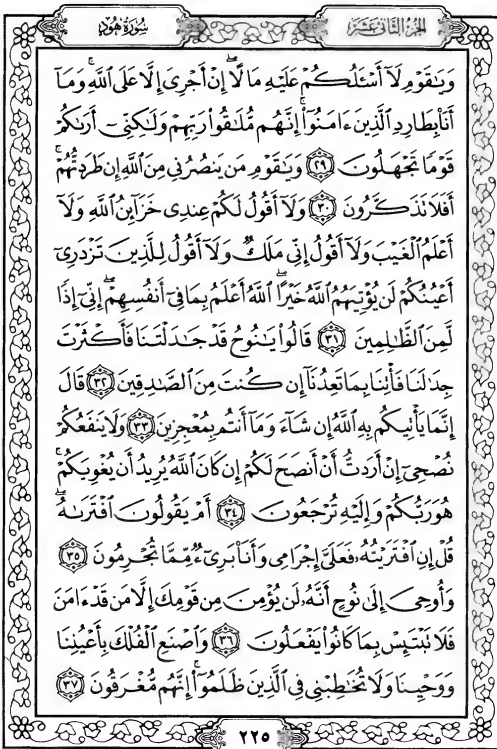 الجزء الثاني عشر
سورة هود
وَيَٰقَوْمِ لَآ أَسْـَٔلُكُمْ عَلَيْهِ مَالًا ۖ إِنْ أَجْرِىَ إِلَّا عَلَى ٱللَّهِ ۚ وَمَآ
أَنَا۠ بِطَارِدِ ٱلَّذِينَ ءَامَنُوٓا۟ ۚ إِنَّهُم مُّلَٰقُوا۟ رَبِّهِمْ وَلَٰكِنِّىٓ أَرَىٰكُمْ
قَوْمًا تَجْهَلُونَ ﴿٢٩﴾ وَيَٰقَوْمِ مَن يَنصُرُنِى مِنَ ٱللَّهِ إِن طَرَدتُّهُمْ ۚ
أَفَلَا تَذَكَّرُونَ ﴿٣٠﴾ وَلَآ أَقُولُ لَكُمْ عِندِى خَزَآئِنُ ٱللَّهِ وَلَآ
أَعْلَمُ ٱلْغَيْبَ وَلَآ أَقُولُ إِنِّى مَلَكٌ وَلَآ أَقُولُ لِلَّذِينَ تَزْدَرِىٓ
أَعْيُنُكُمْ لَن يُؤْتِيَهُمُ ٱللَّهُ خَيْرًا ۖ ٱللَّهُ أَعْلَمُ بِمَا فِىٓ أَنفُسِهِمْ ۖ إِنِّىٓ إِذًا
لَّمِنَ ٱلظَّٰلِمِينَ ﴿٣١﴾ قَالُوا۟ يَٰنُوحُ قَدْ جَٰدَلْتَنَا فَأَكْثَرْتَ
جِدَٰلَنَا فَأْتِنَا بِمَا تَعِدُنَآ إِن كُنتَ مِنَ ٱلصَّٰدِقِينَ ﴿٣٢﴾ قَالَ
إِنَّمَا يَأْتِيكُم بِهِ ٱللَّهُ إِن شَآءَ وَمَآ أَنتُم بِمُعْجِزِينَ ﴿٣٣﴾ وَلَا يَنفَعُكُمْ
نُصْحِىٓ إِنْ أَرَدتُّ أَنْ أَنصَحَ لَكُمْ إِن كَانَ ٱللَّهُ يُرِيدُ أَن يُغْوِيَكُمْ ۚ
هُوَ رَبُّكُمْ وَإِلَيْهِ تُرْجَعُونَ ﴿٣٤﴾ أَمْ يَقُولُونَ ٱفْتَرَىٰهُ ۖ
قُلْ إِنِ ٱفْتَرَيْتُهُۥ فَعَلَىَّ إِجْرَامِى وَأَنَا۠ بَرِىٓءٌ مِّمَّا تُجْرِمُونَ ﴿٣٥﴾
وَأُوحِىَ إِلَىٰ نُوحٍ أَنَّهُۥ لَن يُؤْمِنَ مِن قَوْمِكَ إِلَّا مَن قَدْ ءَامَنَ
فَلَا تَبْتَئِسْ بِمَا كَانُوا۟ يَفْعَلُونَ ﴿٣٦﴾ وَٱصْنَعِ ٱلْفُلْكَ بِأَعْيُنِنَا
وَوَحْيِنَا وَلَا تُخَٰطِبْنِى فِى ٱلَّذِينَ ظَلَمُوٓا۟ ۚ إِنَّهُم مُّغْرَقُونَ ﴿٣٧﴾
٢٢٥